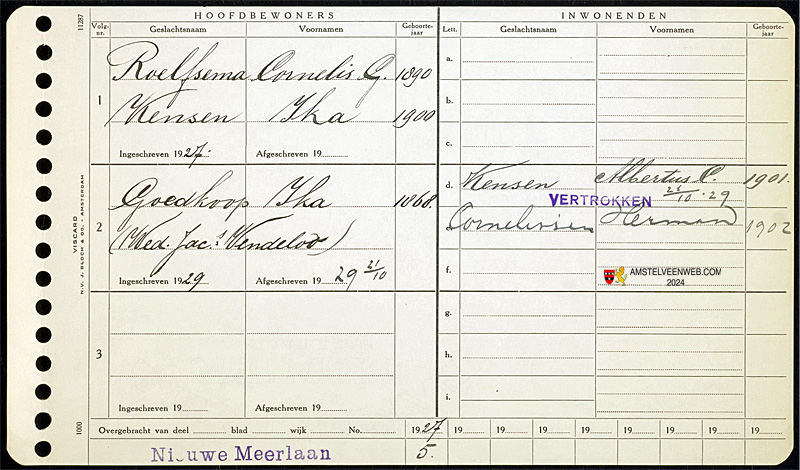 HOOFDBEWONERS
Volg-nr. Geslachtsnaam Voornamen Geboorte-jaar
1 Roelfsema Cornelis G. 1890
Kensen Ika 1900
Ingeschreven 1927. Afgeschreven 19
2 Goedkoop Ika 1868.
(Wed. Jac.s Vendeloo)
Ingeschreven 1929 Afgeschreven 19 29 21/10
3
Ingeschreven 19 Afgeschreven 19
INWONENDEN
Lett. Geslachtsnaam Voornamen Geboorte-jaar
a.
b.
c.
d. Kensen Albertus C. 1901.
VERTROKKEN 21/10 · 29
Cornelissen Herman 1902
f.
AMSTELVEENWEB.COM
2024
g.
h.
i.
Overgebracht van deel blad wijk No. 1927 19 19 19 19 19 19 19 19
5.
Nieuwe Meerlaan
11287
VISCARD
N.V. J. BLOCH & CO. - AMSTERDAM
1000